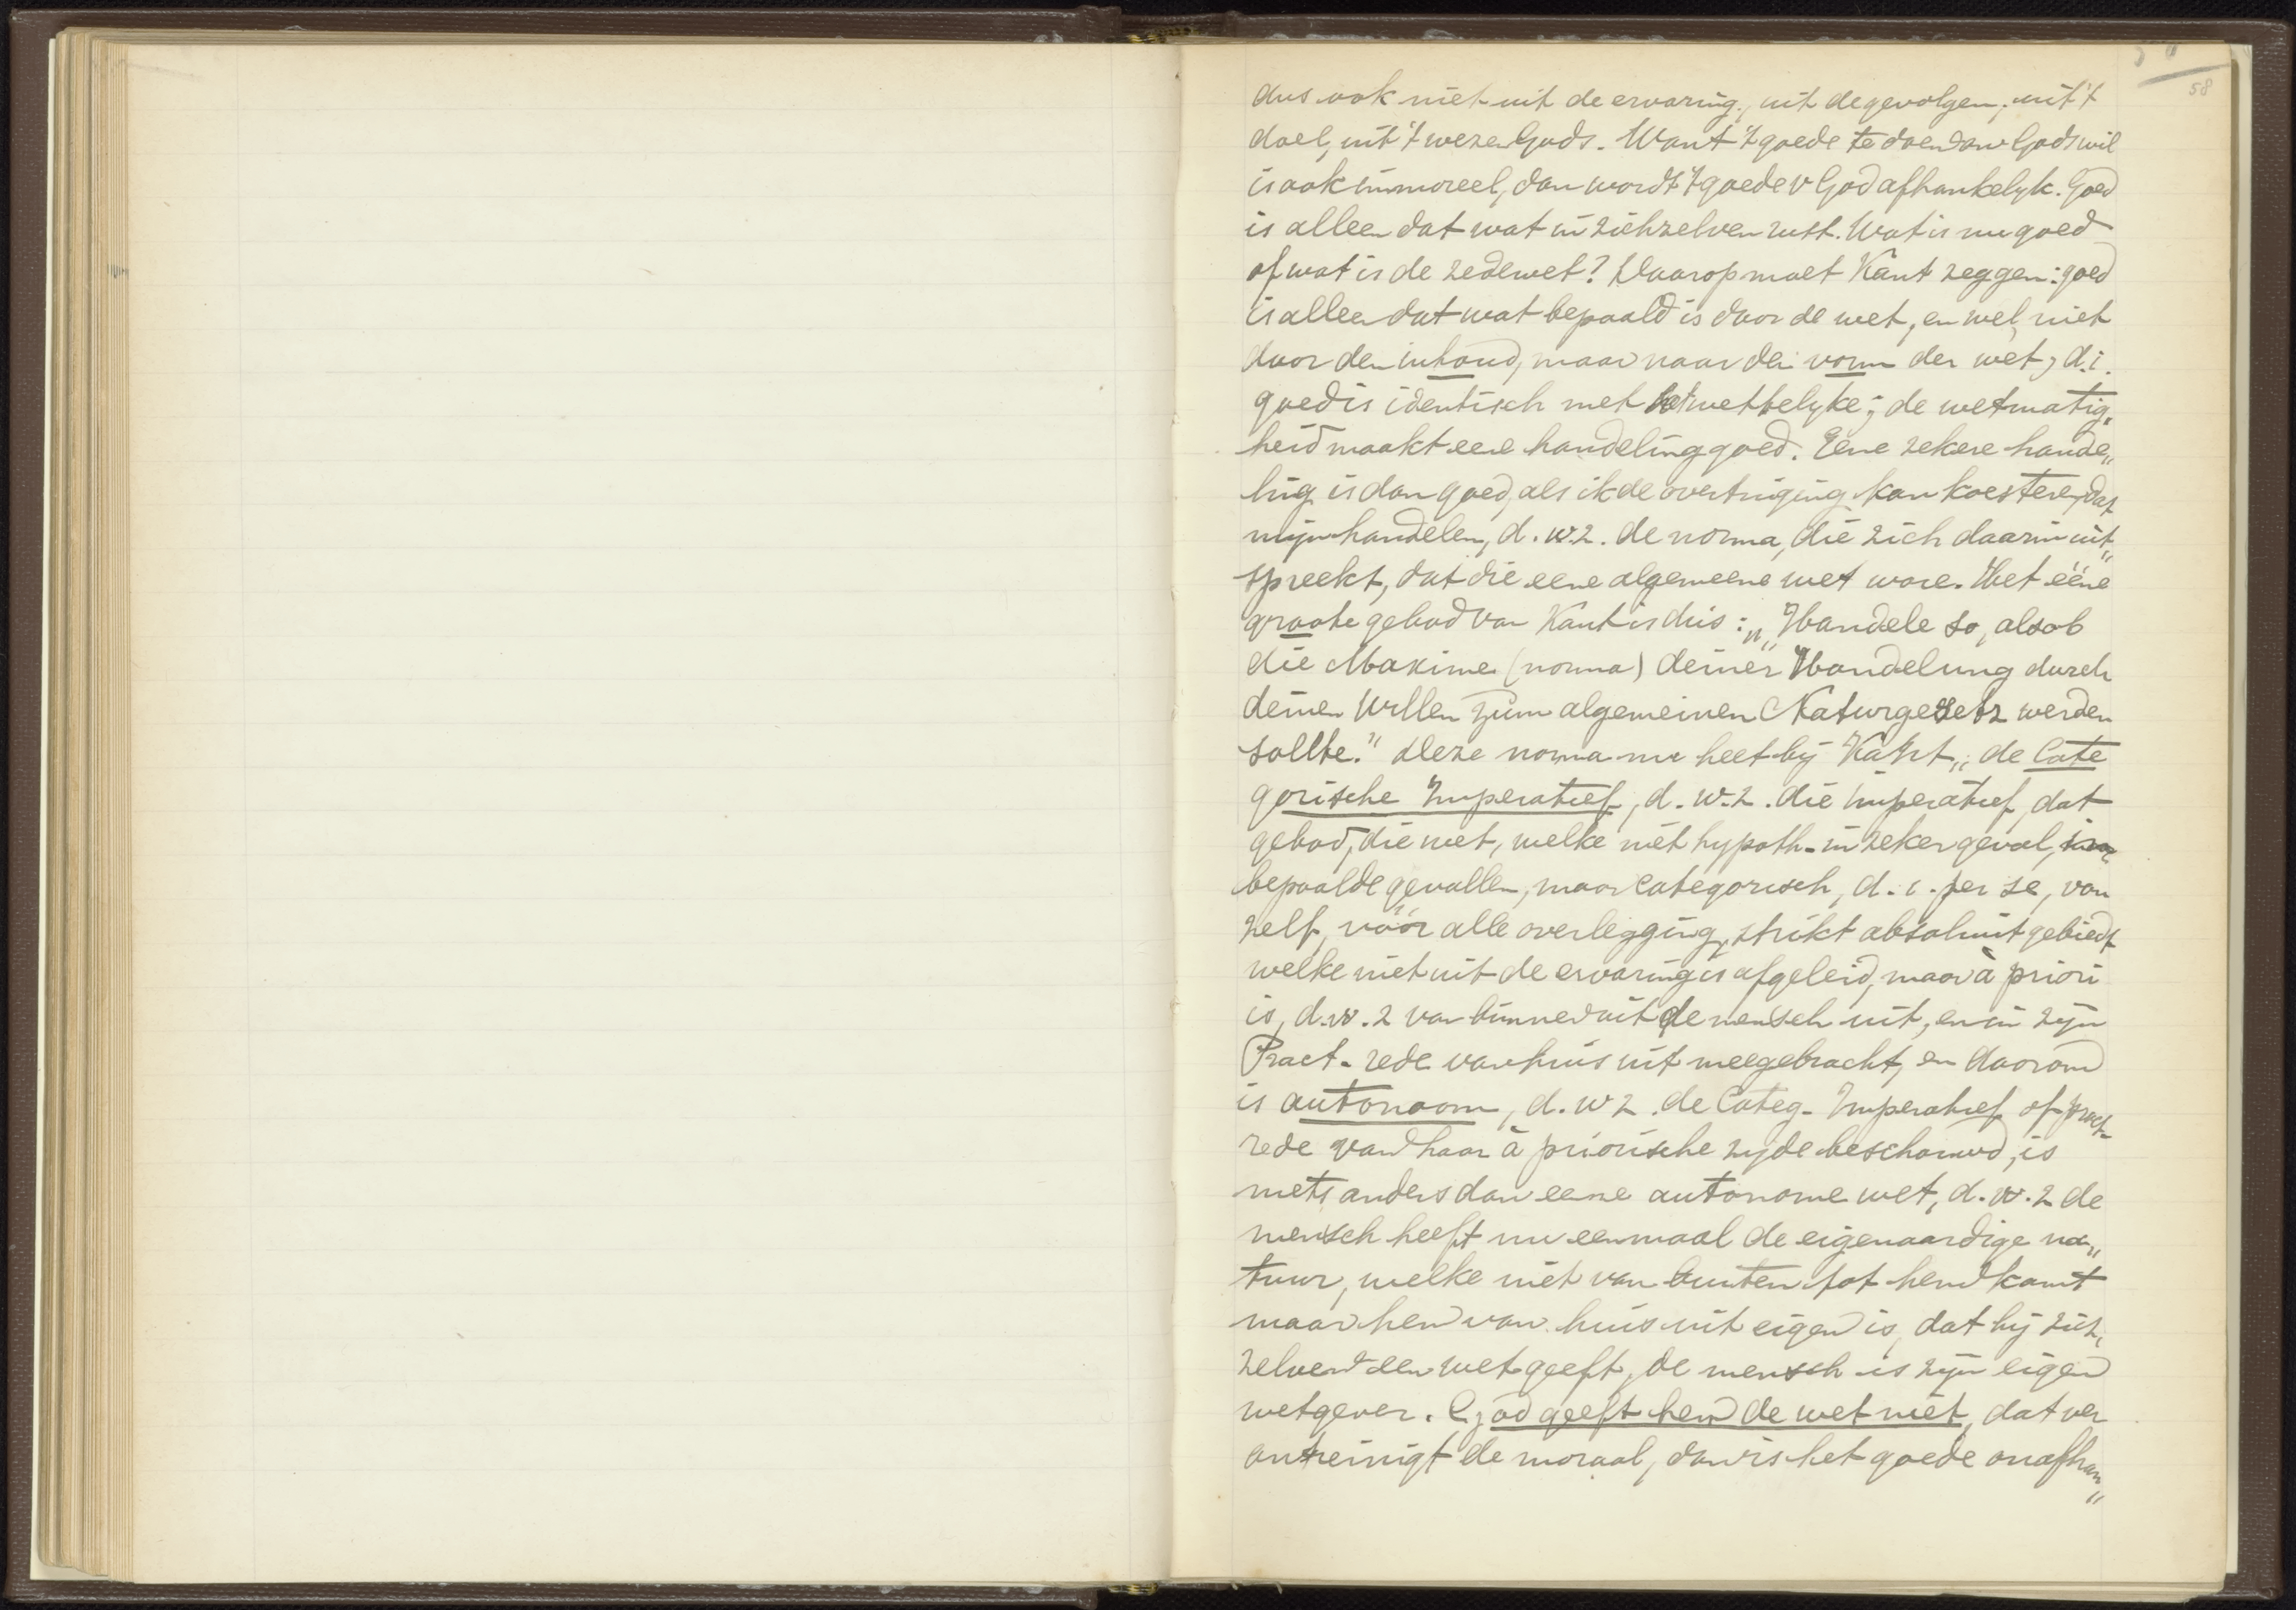 58
dus ook niet uit de ervaring, uit de gevolgen, uit 't
doel, uit 't wezen Gods. Want 't goede te doen om Gods wil
is ook immoreel, dan wordt 't goede v God afhankelyk. Goed
is alleen dat wat in zichzelven rust. Wat is nu goed
of wat is de zedewet? Daarop moet Kant zeggen: goed
is alleen dat wat bepaald is door de wet, en wel niet
door den inhoud, maar naar den vorm der wet, d.i.
goed is identisch met het wettelyke; de wetmatig„
heid maakt eene handeling goed. Eene zekere hande„
ling is dan goed, als ik de overtuiging kan koesteren, dat
mijn handelen, d.w.z. de norma, die zich daarin uit„
spreekt, dat die eene algemeene wet ware. Het ééne
groote gebod van Kant is dus: „Handele so, als ob
die Maxime (norma) deiner Handelung durch
deinen Willen zum algemeinen Naturgesetz werden
sollte." Deze norma nu heet bij Kant „de Cate
gorische Imperatief, d.w.z. die imperatief, dat
gebod, die wet, welke niet hypoth. in zeker geval,
bepaalde gevallen, maar categorisch, d.i. per se, van
zelf, vóór alle overlegging, strikt absoluut gebiedt
welke niet uit de ervaring is afgeleid, maar à priori
is, d.w.z van binnen uit de mensch uit, en in zyn
Pract. rede van huis uit meegebracht, en daarom
is autonoom, d.w z. de Categ. Imperatief of pract.
rede van haar à priorische zyde beschouwd, is
niets anders dan eene autonome wet, d.w.z de
mensch heeft nu eenmaal de eigenaardige na„
tuur, welke niet van buiten tot hem komt
maar hem van huis uit eigen is, dat hij zich„
zelven een wet geeft, de mensch is zyn eigen
wetgever. God geeft hem de wet niet, dat ver
ontreinigt de moraal, dan is het goede onafhan„